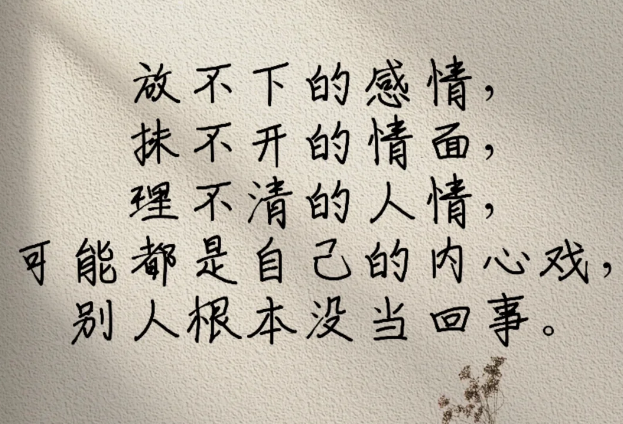 放不下的感情，
抹不开的情面，
理不清的人情，
可能都是自己的内心戏，
别人根本没当回事。